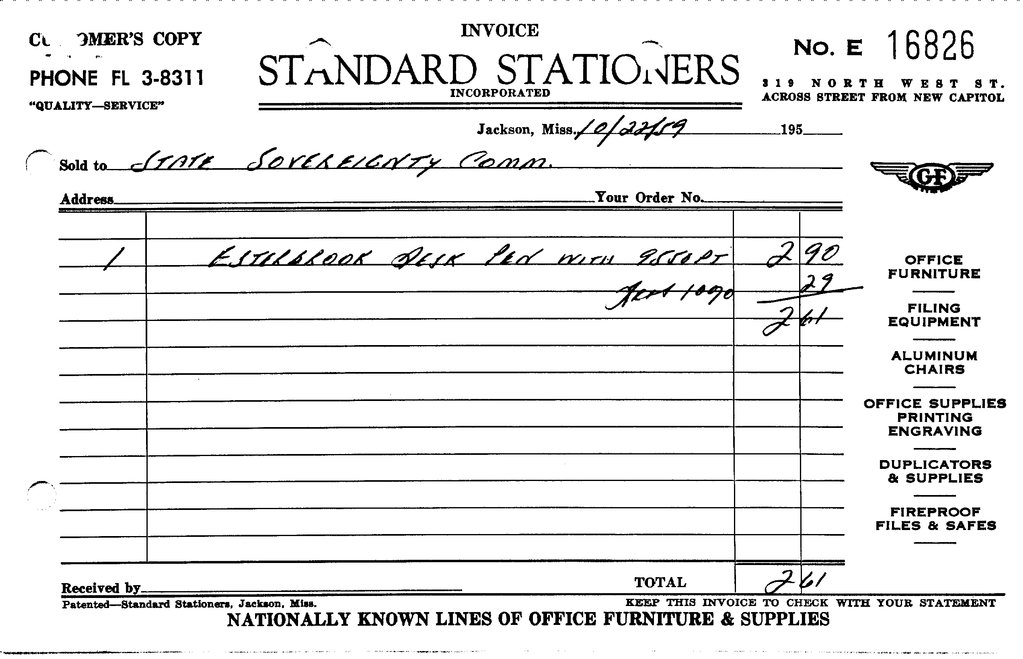 INVOICE
CUSTOMER'S COPY
No. E 16826
STANDARD STATIONERS
PHONE FL 3-8311
INCORPORATED
319 NORTH WEST ST.
"QUALITY—SERVICE"
ACROSS STREET FROM NEW CAPITOL
Jackson, Miss. 10/22/59 195
Sold to STATE SOVEREIGNTY COMM.
Address Your Order No.
GF
1 ESTERBROOK DESK PEN WITH 9556PT 2 90
10% 29
2 61
OFFICE
FURNITURE
FILING
EQUIPMENT
ALUMINUM
CHAIRS
OFFICE SUPPLIES
PRINTING
ENGRAVING
DUPLICATORS
& SUPPLIES
FIREPROOF
FILES & SAFES
Received by TOTAL 2 61
Patented—Standard Stationers, Jackson, Miss. KEEP THIS INVOICE TO CHECK WITH YOUR STATEMENT
NATIONALLY KNOWN LINES OF OFFICE FURNITURE & SUPPLIES